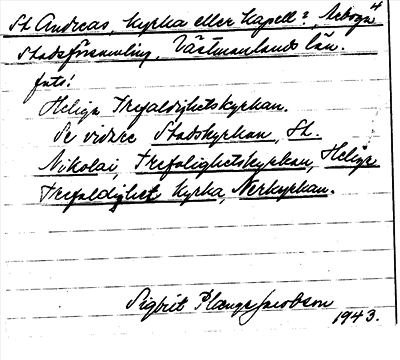 St Andreas, kyrka eller kapell?, Arboga
Stadsförsamling, Västmanlands län.
foto!
Heliga Trefaldighetskyrkan.
Se vidare Stadskyrkan, St.
Nikolai, Trefalighetskyrkan, Heliga
Trefaldighet kyrka, Nerkyrkan.
Sigbrit Plænge Jacobson
1943.